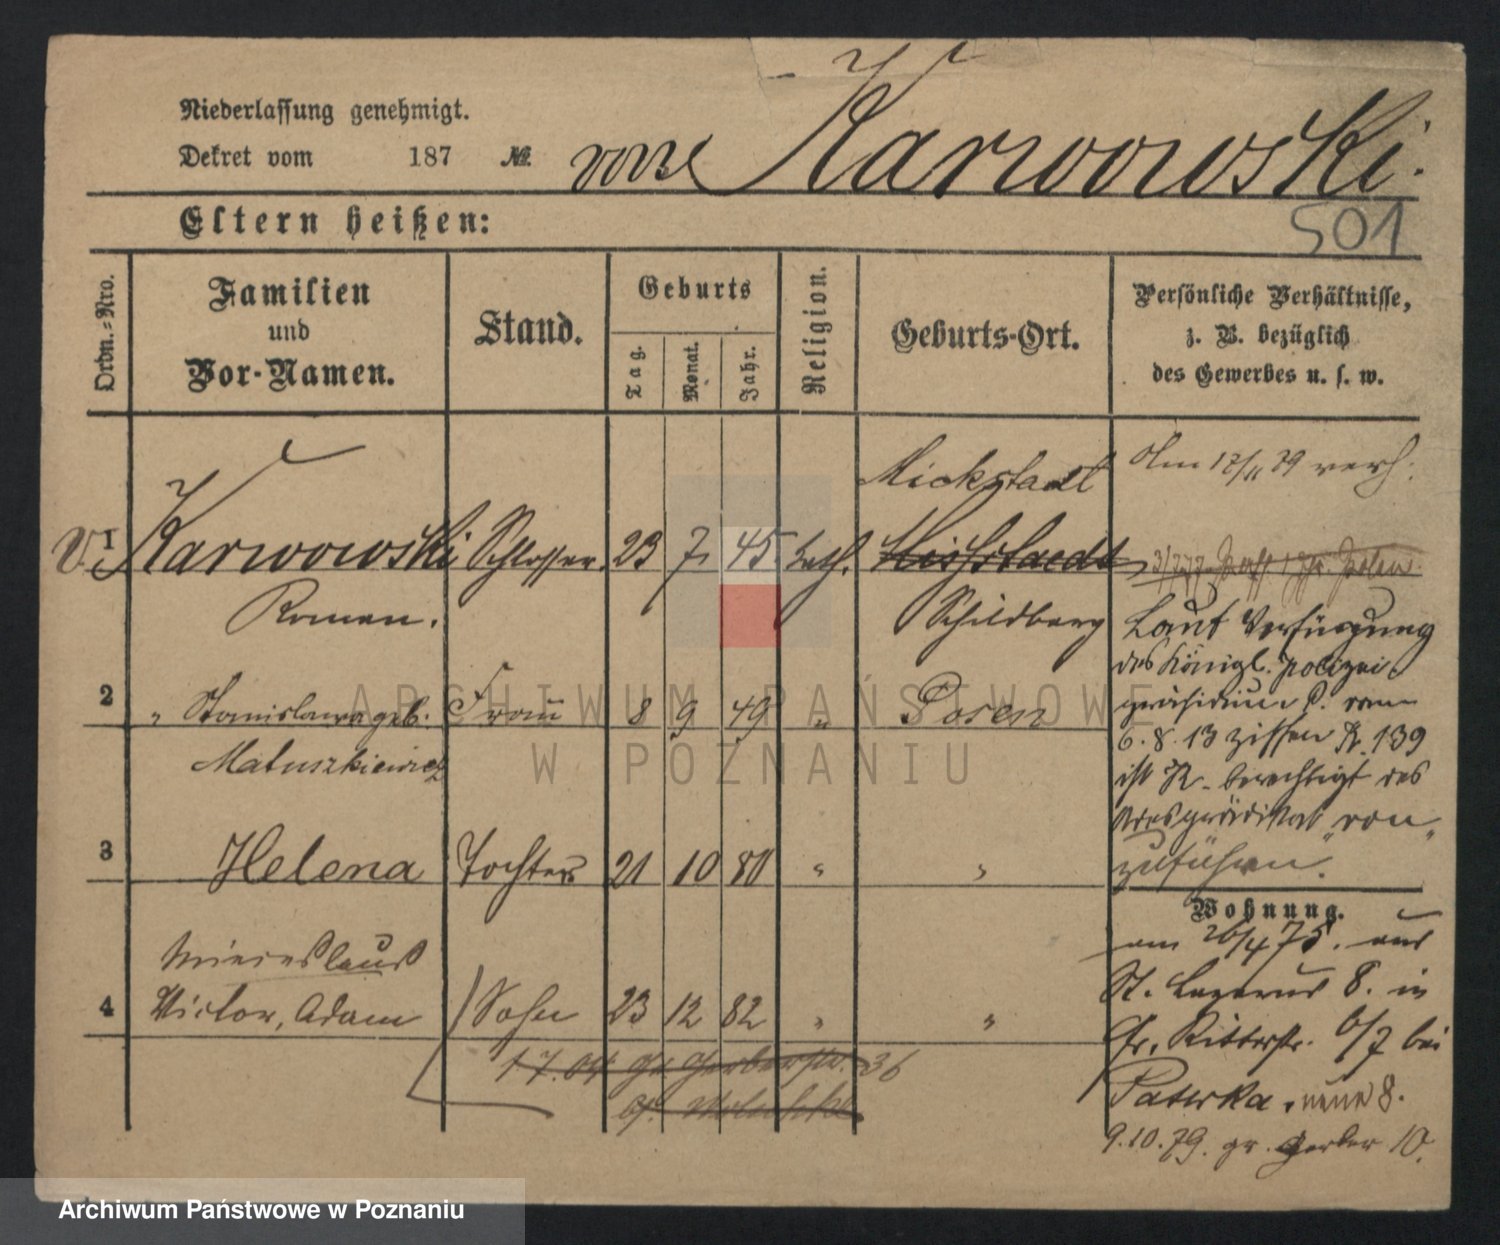 Niederlassung genehmigt.
Dekret vom 187 №
von Karwowski.
Eltern heißen:
501
Ordn.-Nro.
Familien
und
Vor-Namen.
Stand.
Geburts
Tag.
Monat.
Jahr.
Religion.
Geburts-Ort.
Persönliche Verhältnisse,
z. B. bezüglich
des Gewerbes u. s. w.
Mickstadt
Am 12/11 79 verh.
v. 1 Karwowski Schlosser. 23 7. 45. kath.
Roman. Schildberg
Laut Verfügung
des Königl. Polizei-
präsidiums P. vom
6. 8. 13 Ziffer R. 139
ist K. berechtigt das
Adelsprädikat "von"
zuführen.
2 " Stanislawa geb. Frau 8 9 49 " Posen
Matuszkiewicz
3 Helena Tochter 21 10 80 " "
Wohnung.
am 26/4 75. aus
St. Lazarus 8. in
Gr. Ritterstr. 6/7 bei
Paterka. neue 8.
9.10.79. gr. Gerber 10.
Miecislaus
4 Victor, Adam Sohn 23 12 82 " "
1 7.04 Gr Gerberstr. 36
ARCHIWUM PAŃSTWOWE
W POZNANIU
Archiwum Państwowe w Poznaniu